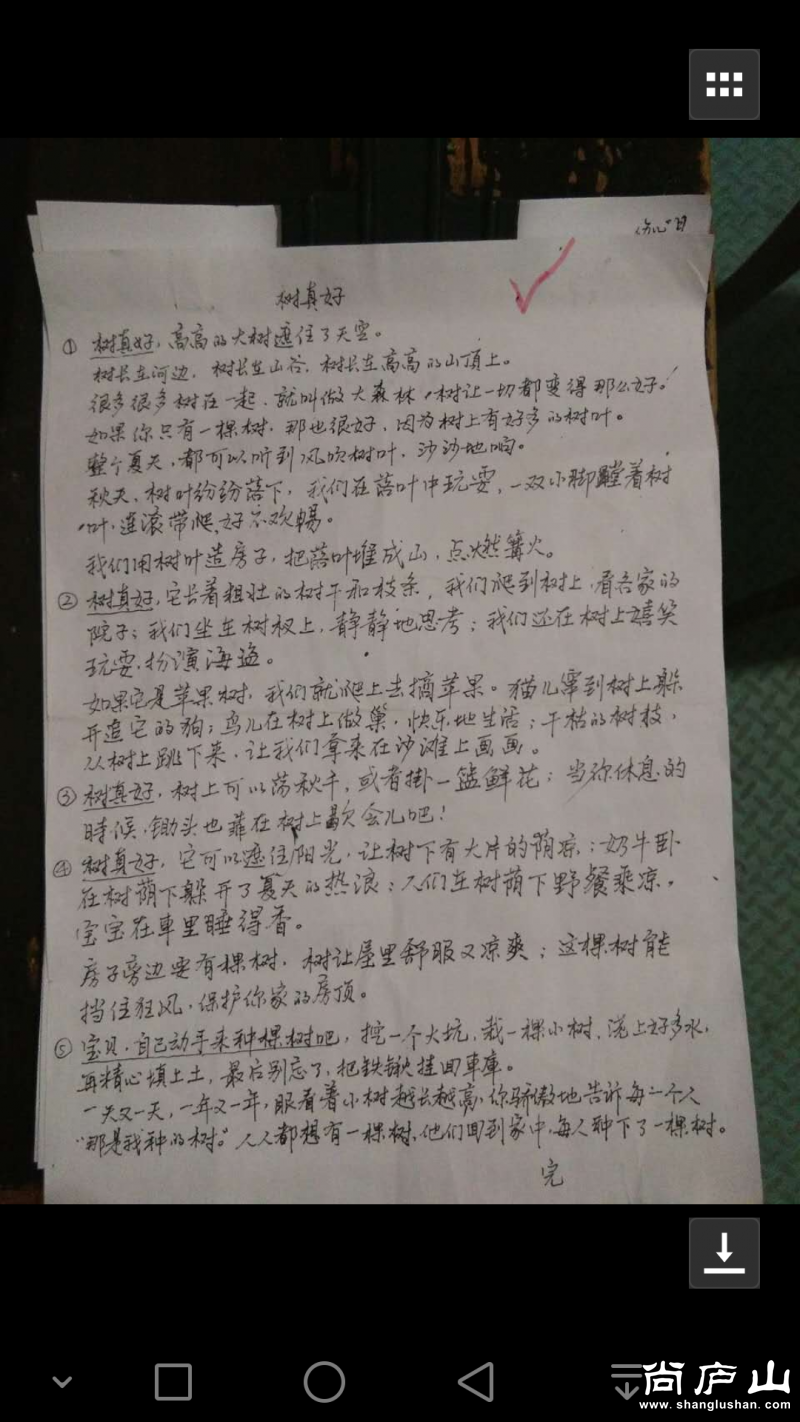 树真好
① 树真好,高高的大树遮住了天空。
树长在河边,树长在山谷,树长在高高的山顶上。
很多很多树在一起、就叫做大森林,树让一切都变得那么好。
如果你只有一棵树,那也很好,因为树上有好多的树叶。
整个夏天,都可以听到风吹树叶,沙沙地响。
秋天,树叶纷纷落下,我们在落叶中玩耍,一双小脚蹚着树
叶,连滚带爬,好不欢畅。
我们用树叶造房子,把落叶堆成山,点燃篝火。
② 树真好,它长着粗壮的树干和枝条,我们爬到树上,看吾家的
院子;我们坐在树杈上,静静地思考;我们还在树上嘻笑
玩耍,扮演海盗。
如果它是苹果树,我们就爬上去摘苹果。猫儿窜到树上躲
开追它的狗;鸟儿在树上做巢,快乐地生活;干枯的树枝,
从树上跳下来,让我们拿来在沙滩上画画。
③ 树真好,树上可以荡秋千,或者掛一篮鲜花;当你休息的
時候,锄头也靠在树上歇会儿吧!
④ 树真好,它可以遮住阳光,让树下有大片的阴凉;奶牛卧
在树荫下躲开了夏天的热浪;人们在树荫下野餐乘凉,
宝宝在車里睡得香。
房子旁边要有棵树,树让屋里舒服又凉爽;这棵树能
挡住狂风,保护你家的房顶。
⑤ 宝贝,自己动手来种棵树吧,挖一个大坑,栽一棵小树,浇上好多水,
再精心填上土,最后别忘了,把铁锹挂回車庫。
一天又一天,一年又一年,眼看着小树越长越高,你骄傲地告诉每一个人
“那是我种的树。”人人都想有一棵树,他们回到家中,每人种下了一棵树。
完
尚庐山
www.shanglushan.com